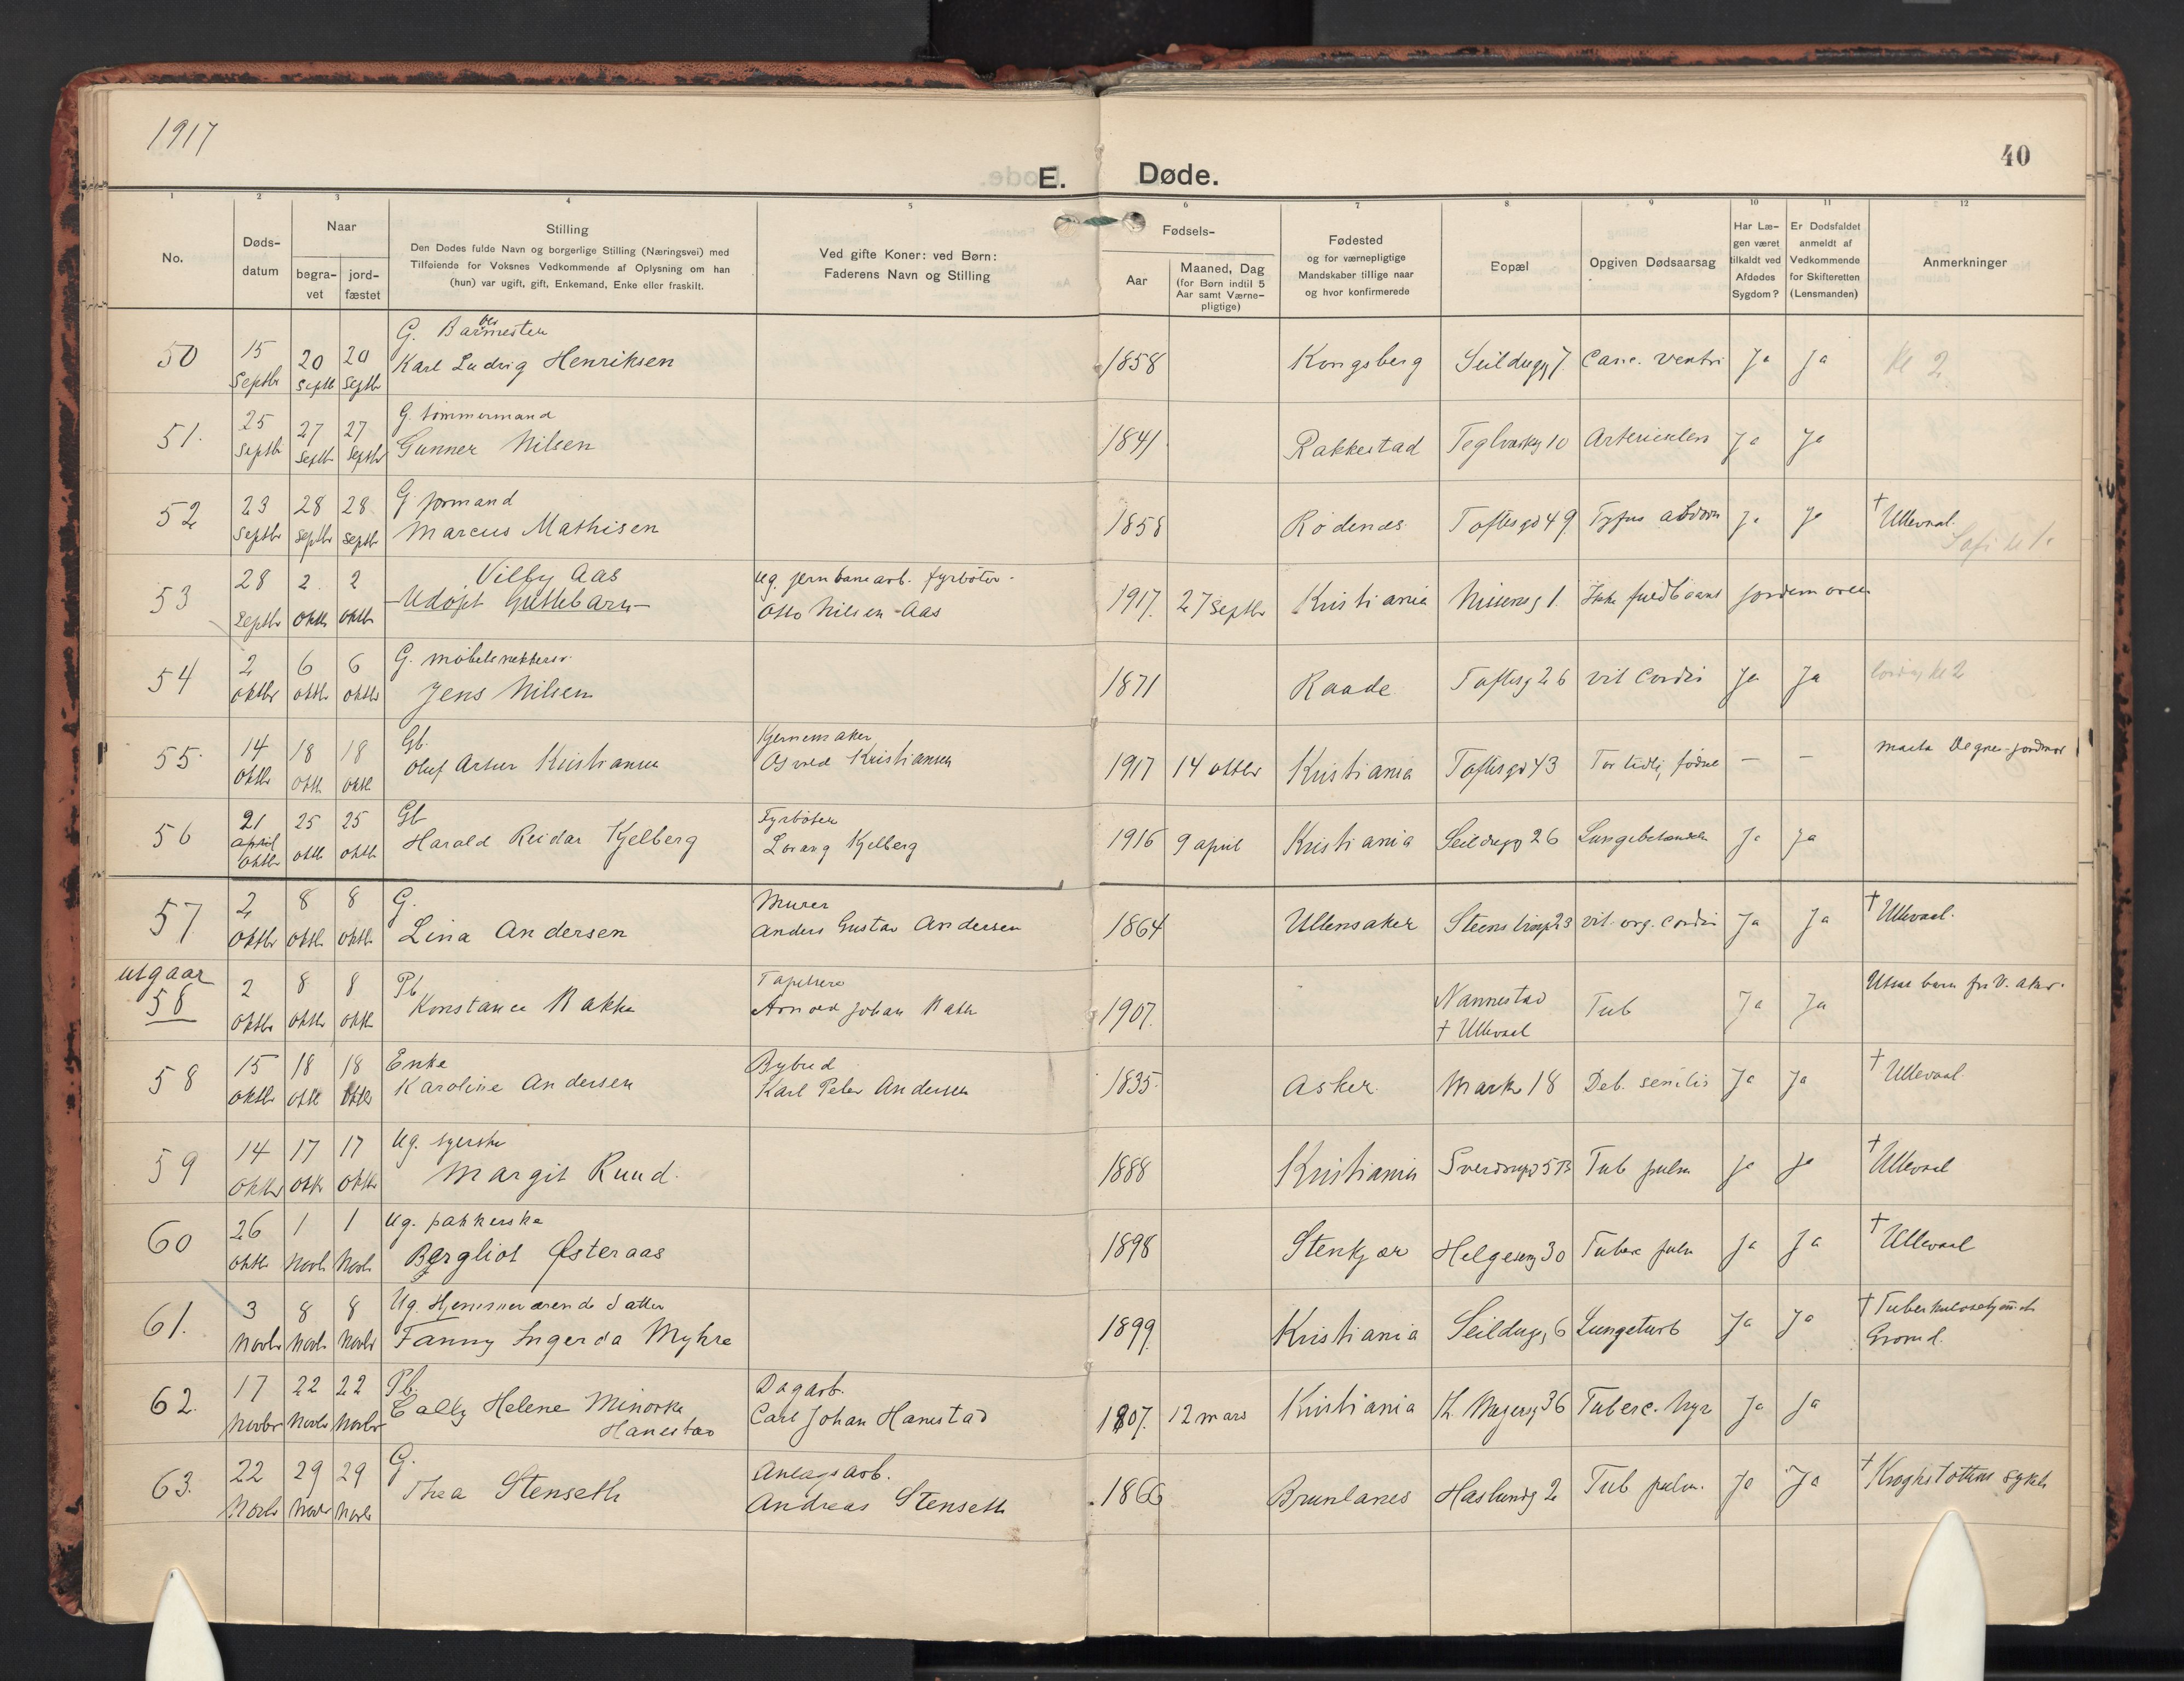 1917
40
E. Døde.
1 2 3 4 5 6 7 8 9 10 11 12
No.
Døds-
datum
Naar
begra-
vet
jord-
fæstet
Stilling
Den Dødes fulde Navn og borgerlige Stilling (Næringsvei) med
Tilføiende for Voksnes Vedkommende af Oplysning om han
(hun) var ugift, gift, Enkemand, Enke eller fraskilt.
Ved gifte Koner: ved Børn:
Faderens Navn og Stilling
Fødsels-
Aar
Maaned, Dag
(for Børn indtil 5
Aar samt Værne-
pligtige)
Fødested
og for værnepligtige
Mandskaber tillige naar
og hvor konfirmerede
Bopæl
Opgiven Dødsaarsag
Har Læ-
gen været
tilkaldt ved
Afdødes
Sygdom?
Er Dødsfaldet
anmeldt af
Vedkommende
for Skifteretten
(Lensmanden)
Anmerkninger
50 15 Septbr 20 Septb 20 Septbr G.
Karl Ludvig Henriksen 1858 Kongsberg Seildugg 7. Canc. ventri Ja Ja Kl 2
51. 25 Septbr 27 Septbr 27 Septbr G. tømmermand
Gunner Nilsen 1841 Rakkestad Teglverksg 10 Ja Ja
52 23 Septbr 28 Septbr 28 Septbr G. formand
Marcus Mathisen 1858 Rødenes Toftesgd 49 Tyfus abdom Ja Ja † Ullevaal.
53 28 Septbr 2 Oktb 2 Oktbr Vilby Aas
Udøpt Guttebarn
ug. jernbanearb. fyrbøter.
Otto Nilsen-Aas 1917. 27 Septbr Kristiania Nissensg 1. Ikke fuldbaaret jordemoren
54 2 Oktbr 6 Oktb 6 Oktbr G. møbelsnekkersv.
Jens Nilsen 1871 Raade Toftesg 26 vit Cordis Ja Ja
55. 14 Oktbr 18 Oktb 18 Oktb Gb.
Oluf Artur Kristiansen
Osvald Kristiansen 1917 14 oktbr Kristiania Toftesgd 43 For tidlig fødsel — —
56 21 april Oktbr 25 Oktb 25 Oktbr Gb
Harald Reidar Kjelberg
Fyrbøter
Lorang Kjelberg 1916 9 april Kristiania Seildugg 26 Lungebetændelse Ja Ja
57 2 Oktbr 8 Oktbr 8 Oktbr G.
Lina Andersen
Murer
Anders Gustav Andersen 1864 Ullensaker Steenstrupg 23 vit. org. cordis Ja Ja † Ullevaal.
utgaar
58 2 Oktbr 8 Oktbr 8 Oktb Pb
Konstance Bakke
Arnold Johan Bakke 1907. Nannestad
† Ullevaal Tub Ja Ja
58 15 Oktbr 18 Oktb 18 Oktbr Enke
Karoline Andersen
Bybud
Karl Peter Andersen 1835. Asker. Markv 18 Deb. senilis Ja Ja † Ullevaal.
59 14 Oktbr 17 Oktb 17 Oktbr Ug. syerske
Margit Ruud. 1888 Kristiania Sverdrupgd 5B Tub pulm Ja Ja † Ullevaal
60 26 Oktbr 1 Novb 1 Novb Ug. pakkerske
Bergliot Østeraas 1898 Stenkjær Helgesensg 30 Tuberc pulm Ja Ja † Ullevaal
61. 3 Novbr 8 Novb 8 Novbr Ug. Hjemmeværende datter
Fanny Ingerda Myhre 1899. Kristiania Seildugg 6 Lungetub Ja Ja † Tuberkulosehjemmet
Grorud.
62. 17 Novbr 22 Novbr 22 Novbr Pb.
Helene
Hanestad
Dagarb.
Carl Johan Hanestad 1907. 12 mars Kristiania Th. Meyersg 36 Tuberc. Ja Ja
63. 22 Novbr 29 Novbr 29 Novbr G.
Thea Stenseth
Anlægsarb.
Andreas Stenseth 1866 Brunlanes Haslundsg 2 Tub pulm. Ja Ja † Krohgstøttens sykeh